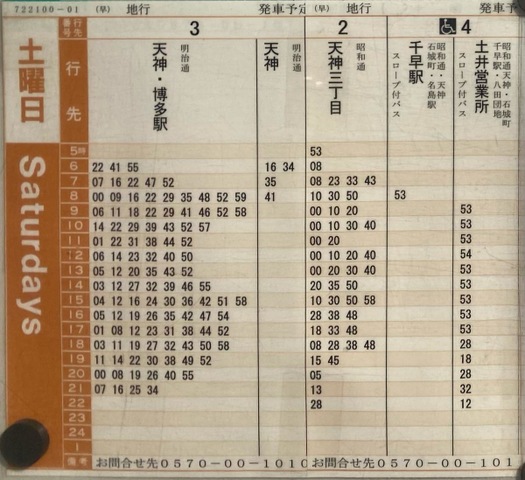 722100-01 (早) 地行 発車予定 (早) 地行 発車予
番号 行先 3 2 4
土曜日
行先
天神・博多駅 明治通
天神 明治通
天神三丁目 昭和通
千早駅 昭和通・天神 石城町・名島駅 スロープ付バス
土井営業所 昭和通・天神・石城町 千早駅・八田団地 スロープ付バス
Saturdays
5時 53
6 22 41 55 16 34 08
7 07 16 22 47 52 35 08 23 33 43
8 00 09 16 22 29 35 48 52 59 41 10 30 50 53
9 06 11 18 22 29 41 46 52 58 00 10 20 53
10 14 22 29 39 43 52 57 00 10 30 40 53
11 01 22 31 38 44 52 00 20 53
12 06 14 23 32 40 50 00 10 20 40 54
13 05 12 20 35 43 52 00 20 30 40 53
14 03 12 27 32 39 46 55 20 35 50 53
15 04 12 16 24 30 36 42 51 58 10 30 50 58 53
16 05 12 19 26 35 42 47 54 28 38 48 53
17 01 08 12 23 31 38 44 52 18 33 48 53
18 03 11 19 27 32 43 50 58 08 28 38 48 28
19 11 14 22 30 38 49 52 15 45 18
20 00 08 19 26 40 55 05 28
21 07 16 25 34 13 32
22 28 12
23
24
1
備考 お問合せ先0570-00-1010 お問合せ先0570-00-101